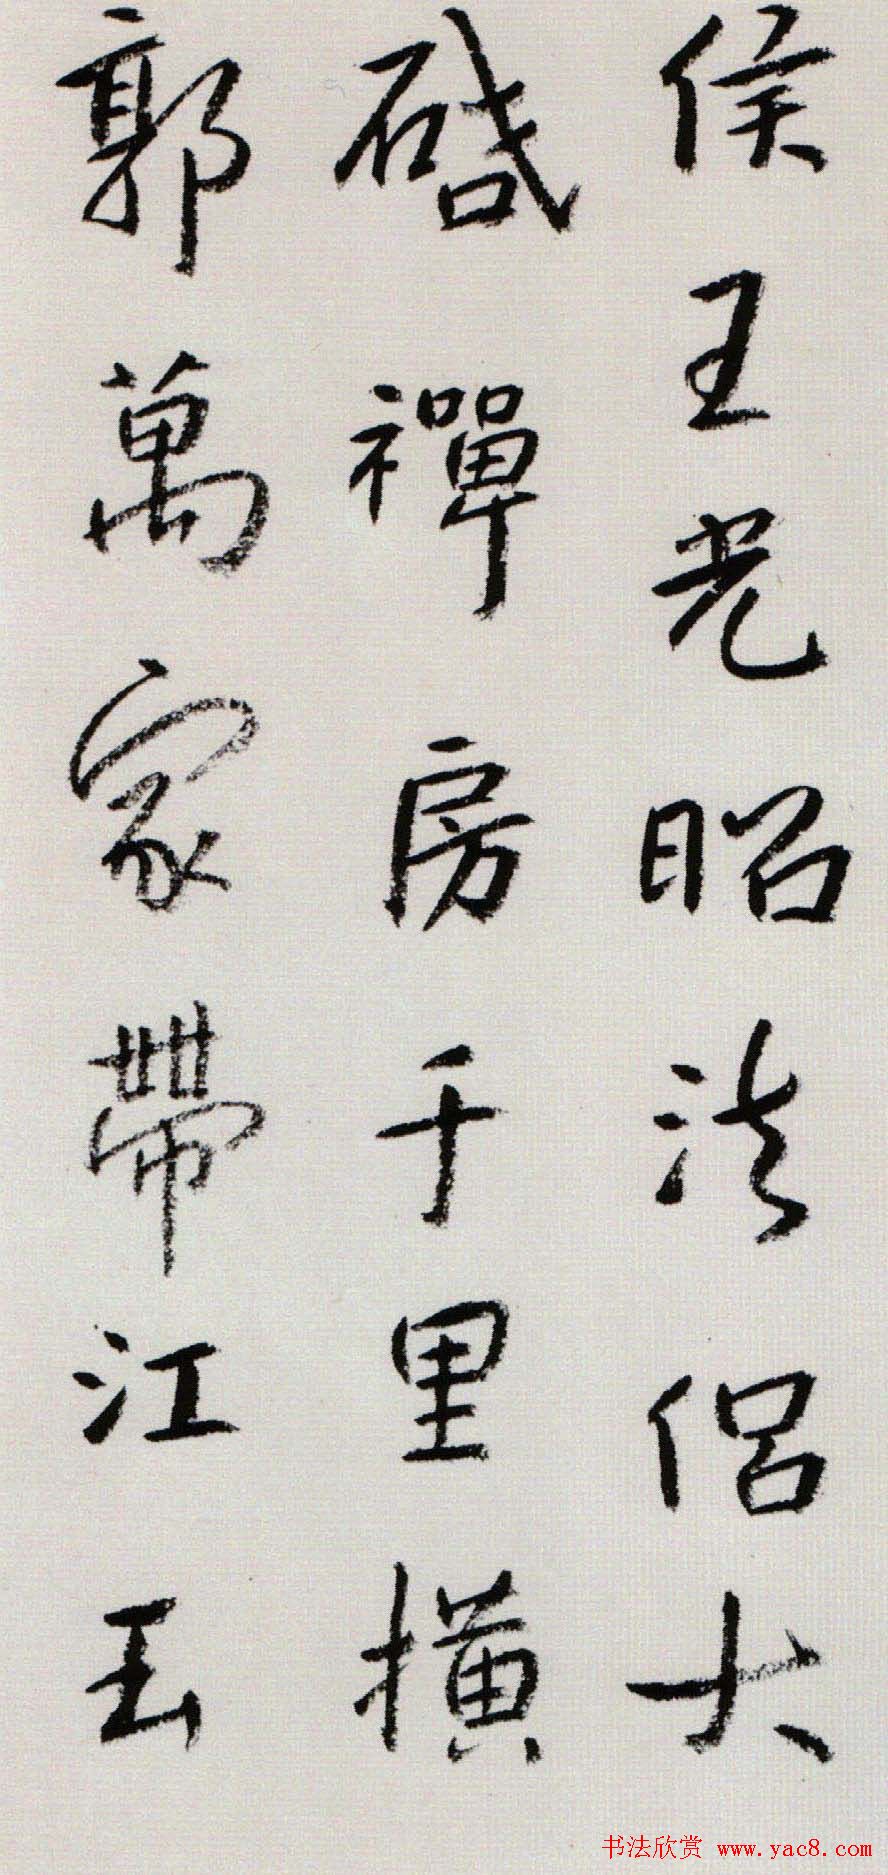 侯王光昭法侣大
啟禪房千里横
郭萬家帶江玉
书法欣赏 www.yac8.com